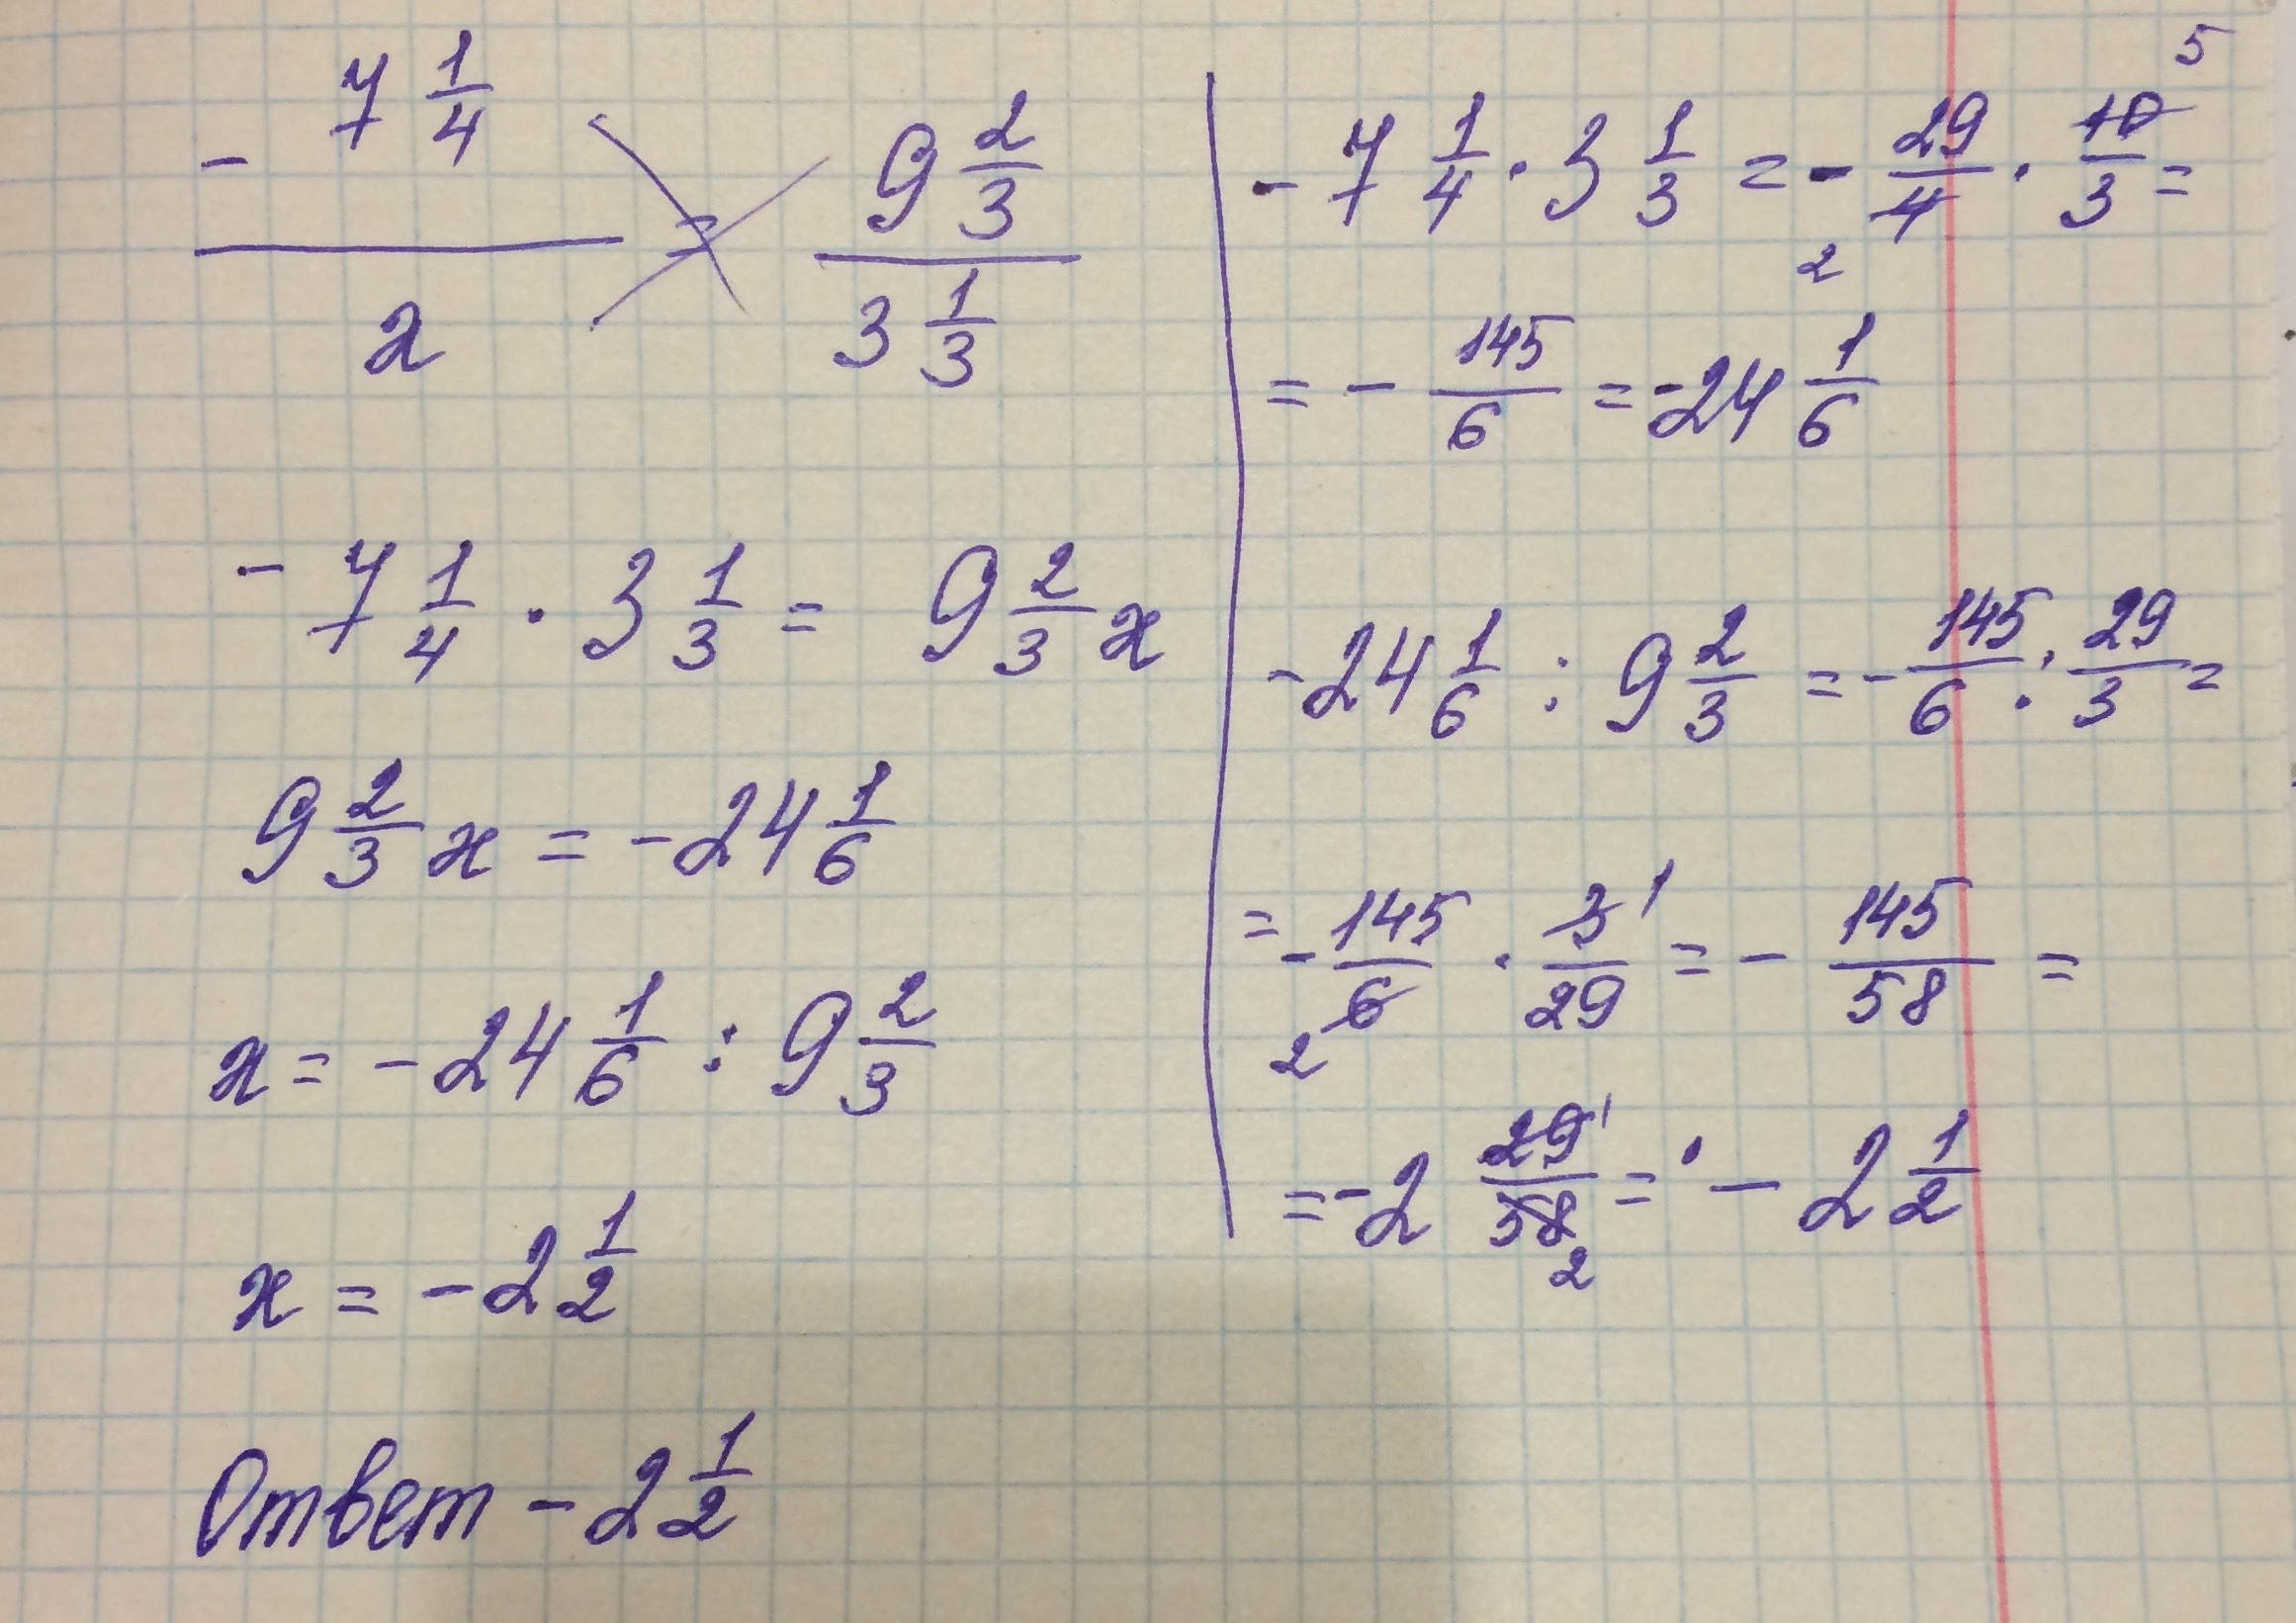 - 7 1/4 / x = 9 2/3 / 3 1/3
- 7 1/4 · 3 1/3 = 9 2/3 x
9 2/3 x = - 24 1/6
x = - 24 1/6 : 9 2/3
x = - 2 1/2
Ответ - 2 1/2
- 7 1/4 · 3 1/3 = - 29/4 · 10/3 =
5
2
= - 145/6 = - 24 1/6
- 24 1/6 : 9 2/3 = - 145/6 : 29/3 =
= - 145/6 · 3/29 = - 145/58 =
1
2
= - 2 29/58 = - 2 1/2
1
2